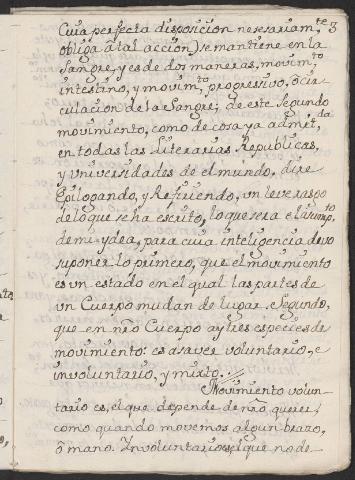 Cuia perfecta disposicion nesesariam.te 3
obliga â tal accion, se mantiene en la
Sangre, y es de dos maneras, movim.to
intestino, y movim.to progressivo, ô cir-
culacion de la Sangre; de este Segundo
movimiento, como de cosa ya admet,da
en todas las Literarias Republicas,
y Vniversidades de el mundo, dire
Epilogando, y Refiriendo, vn leve rasgo
de lo que se ha escrito, lo que sera el asump.to
de mi ydea, para cuia inteligencia devo
suponer lo primero, que el movimiento
es vn estado en el qual las partes de
vn Cuerpo mudan de lugar. Segundo,
que en nro Cuerpo ay tres especies de
movimiento: es asaver voluntario, e
involuntario, y mixto.
Movimiento volun-
tario es, el que depende de nro querer,
como quando movemos algun brazo,
ô mano. Involuntario es el que no de-